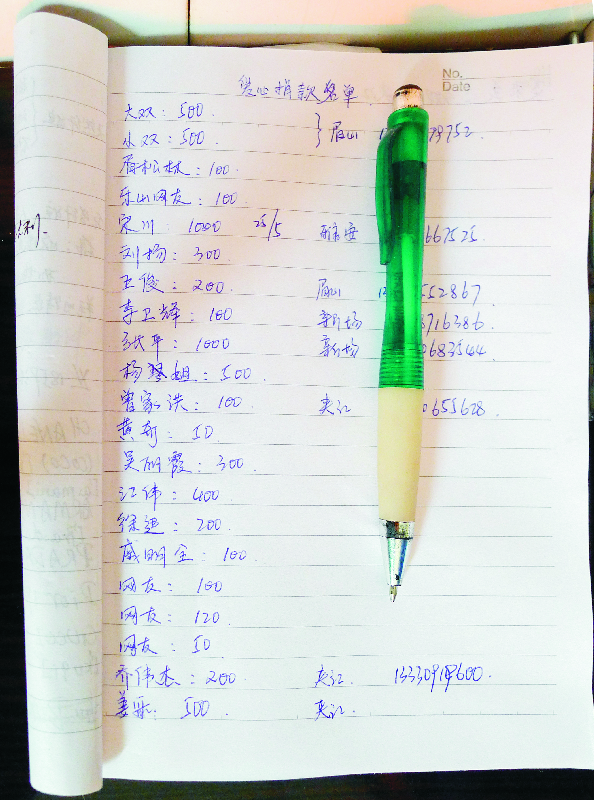 No.
Date
爱心捐款名单
大双：500
小双：500 } 眉山 1 79752
眉松林：100
乐山网友：100
宋川：1000 25/5 雅安 667525.
刘扬：300
王俊：200 眉山 1 552867
李卫辉：100 新场 8716386
张平：1000 新场 0683544
杨琴姐：500
曾家洪：100 夹江 0655628
黄 ：50
吴丽霞：300
江伟：400
徐进：200
戚明全：100
网友：100
网友：120
网友：50
乔伟杰：200 夹江
姜乐：500 夹江